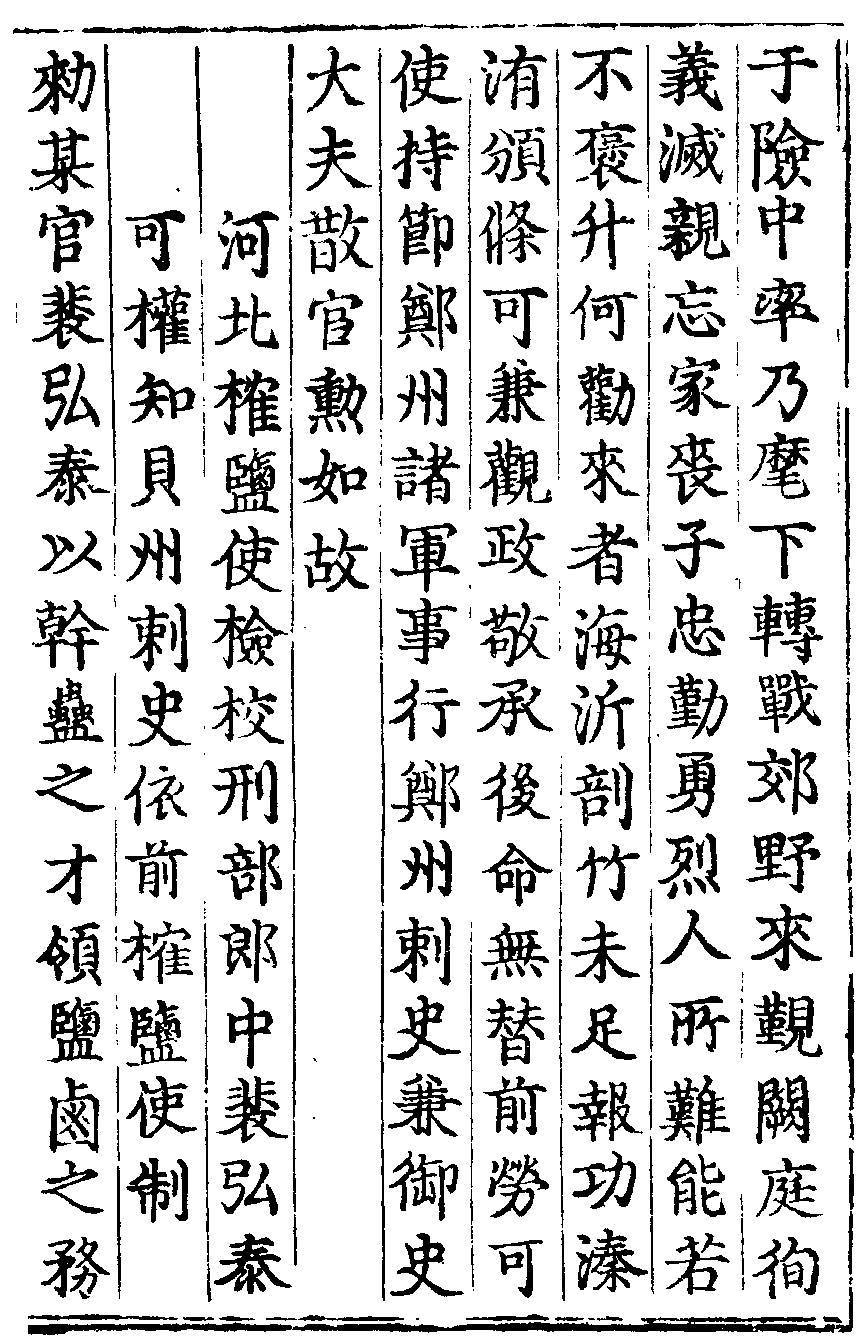 于險中率乃麾下轉戰郊野來覲闕庭徇
義滅親忘家喪子忠勤勇烈人所難能若
不褒升何勸來者海沂剖竹未足報功溱
洧頒條可兼觀政敬承後命無替前勞可
使持節鄭州諸軍事行鄭州刺史兼御史
大夫散官勲如故
河北榷鹽使檢校刑部郎中裴弘泰
可權知貝州刺史依前榷鹽使制
勑某官裴弘泰以幹蠱之才領鹽鹵之務